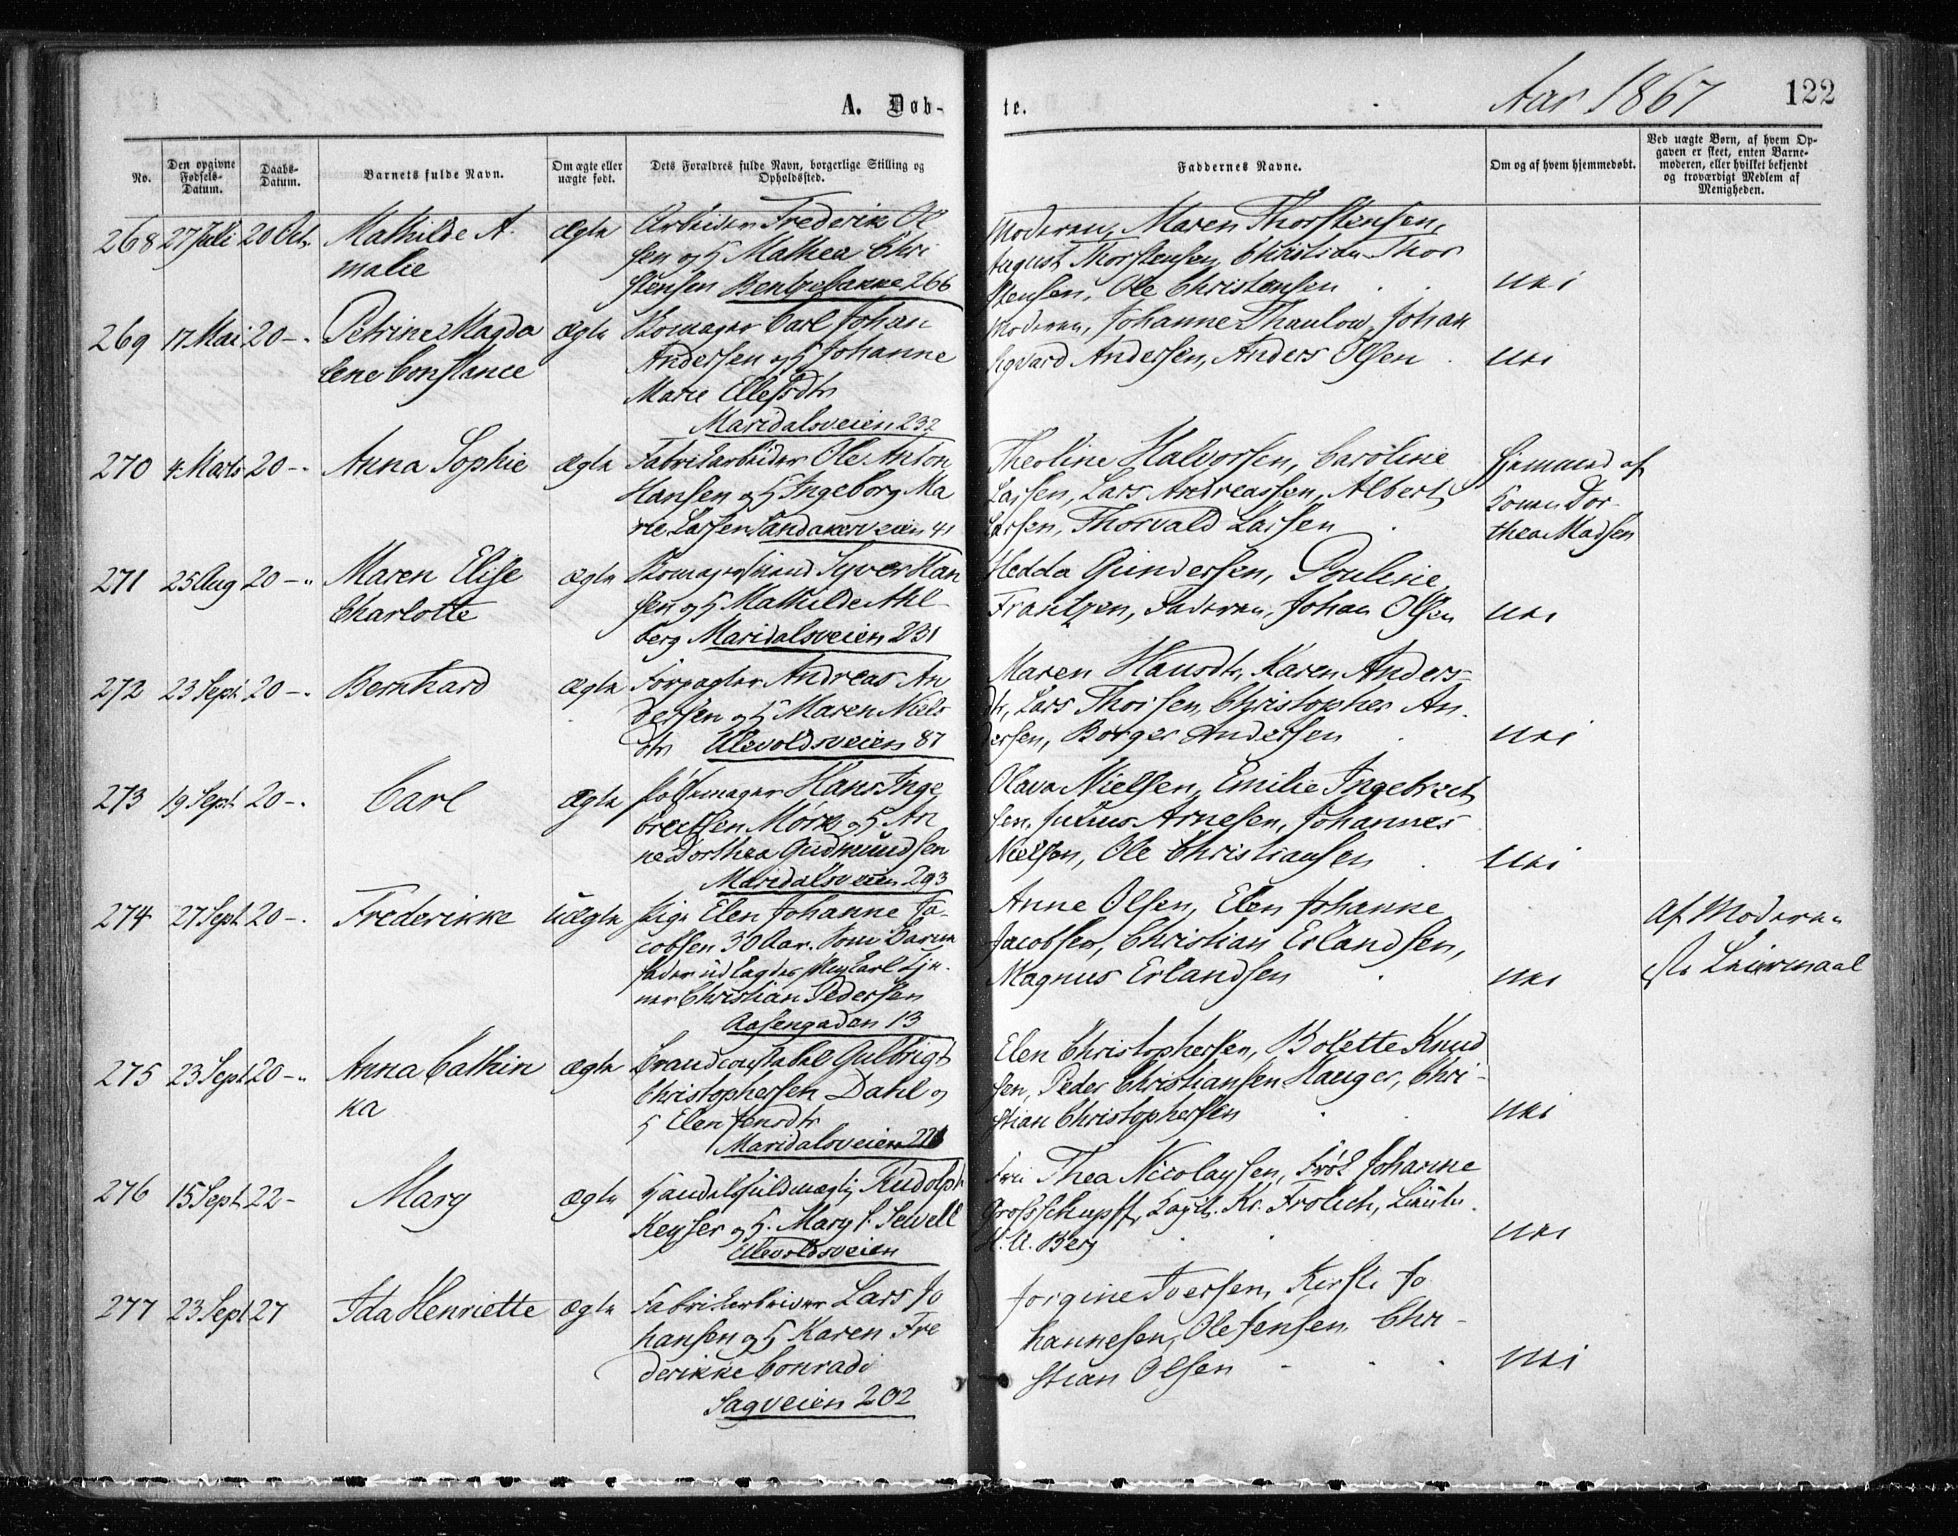 A. Døb-
te.
Aar 1867
122
No.
Den opgivne
Fødsels-
Datum.
Daabs-
Datum.
Barnets fulde Navn.
Om ægte eller
uægte født.
Dets Forældres fulde Navn, borgerlige Stilling og
Opholdssted.
Faddernes Navne.
Om og af hvem hjemmedøbt.
Ved uægte Børn, af hvem Op-
gaven er skeet, enten Barne-
moderen, eller hvilket bekjendt
og troværdigt Medlem af
Menigheden.
268 27 Juli 20 Octr Mathilde A
malie
ægte
Arbeider Frederik Ol
sen og H Mathea Chri
stensen Bentsebakke 266
Moderen, Maren Thorstensen,
August Thorstensen, Christian Thor
stensen, Ole Christensen
nei
269 17 Mai 20 -. Petrine Magda
lene Constance
ægte
Skomager Carl Johan
Andersen og H Johanne
Marie Ellefsdtr
Maridalsveien 232
Moderen, Johanne Thaulow, Johan
Sigvard Andersen, Anders Olsen
nei
270 4 Marts 20 -. Anna Sophie
ægte
Fabrikarbeider Ole Anton
Hansen og H Ingeborg Ma
rie Larsen Sandakerveien 41
Theoline Halvorsen, Caroline
Larsen, Lars Andreassen, Albert
Larsen, Thorvald Larsen
Hjemmed af
Konen Dor-
thea Madsen
271 25 Aug 20 -. Maren Elise
Charlotte
ægte
Skomagersvend Syver Han
sen og H Mathilde Ahl-
berg Maridalsveien 231
Hedda Gundersen, Pouline
Frantzen, Faderen, Johan Olsen
nei
272 23 Sept 20 -. Bernhard
ægte
Forpagter Andreas An
dersen og H Maren Niels
dtr Ullevoldsveien 87
Maren Hansdtr, Karen Anders-
dtr, Lars Thorsen, Christopher An-
dersen, Borger Andersen
nei
273 19 Sept 20 -. Carl
ægte
Hans Inge
bretsen Mørk og H An
ne Dorthea Gudmundsen
Maridalsveien 293
Olava Nielsen, Emilie Ingebrect
sen, Julius Arnesen, Johannes
Nielsen, Ole Christiansen
nei
274 27 Sept 20 -. Frederikke
uægte
Pige Elen Johanne Ja-
cobsen 30 Aar. Som Barne
fader udlagdes Ungkarl Tje-
ner Christian Pedersen
Aasengaden 13
Anne Olsen, Elen Johanne
Jacobsen, Christian Erlandsen,
Magnus Erlandsen
nei
Af Moderen
Leiermaal
275 23 Sept 20 -. Anna Cathin
ka
ægte
Brandconstabel Gulbrigt
Christophersen Dahl og
H Elen Jensdtr
Maridalsveien
Elen Christophersen, Bolette Knud
sen, Peder Christiansen Hauger, Chri-
stian Christophersen
nei
276 15 Sept 22 - Mary
ægte
Handelsfuldmægtig Rudolph
Keyser og H. Mary S. Sewell
Ullevoldsveien
Fru Thea Nicolaysen, Frøk Johanne
Grosschupff, Capt. Kr. Frølich, Lieutn.
H. A. Berg
nei
277 23 Sept 27 Ida Henriette
ægte
Fabrikarbeider Lars Jo
hansen og H Karen Fre
derikke Conradi
Sagveien 202
Jorgine Iversen, Kirsti Jo
hannesen, Ole Jensen, Chri-
stian Olsen
nei